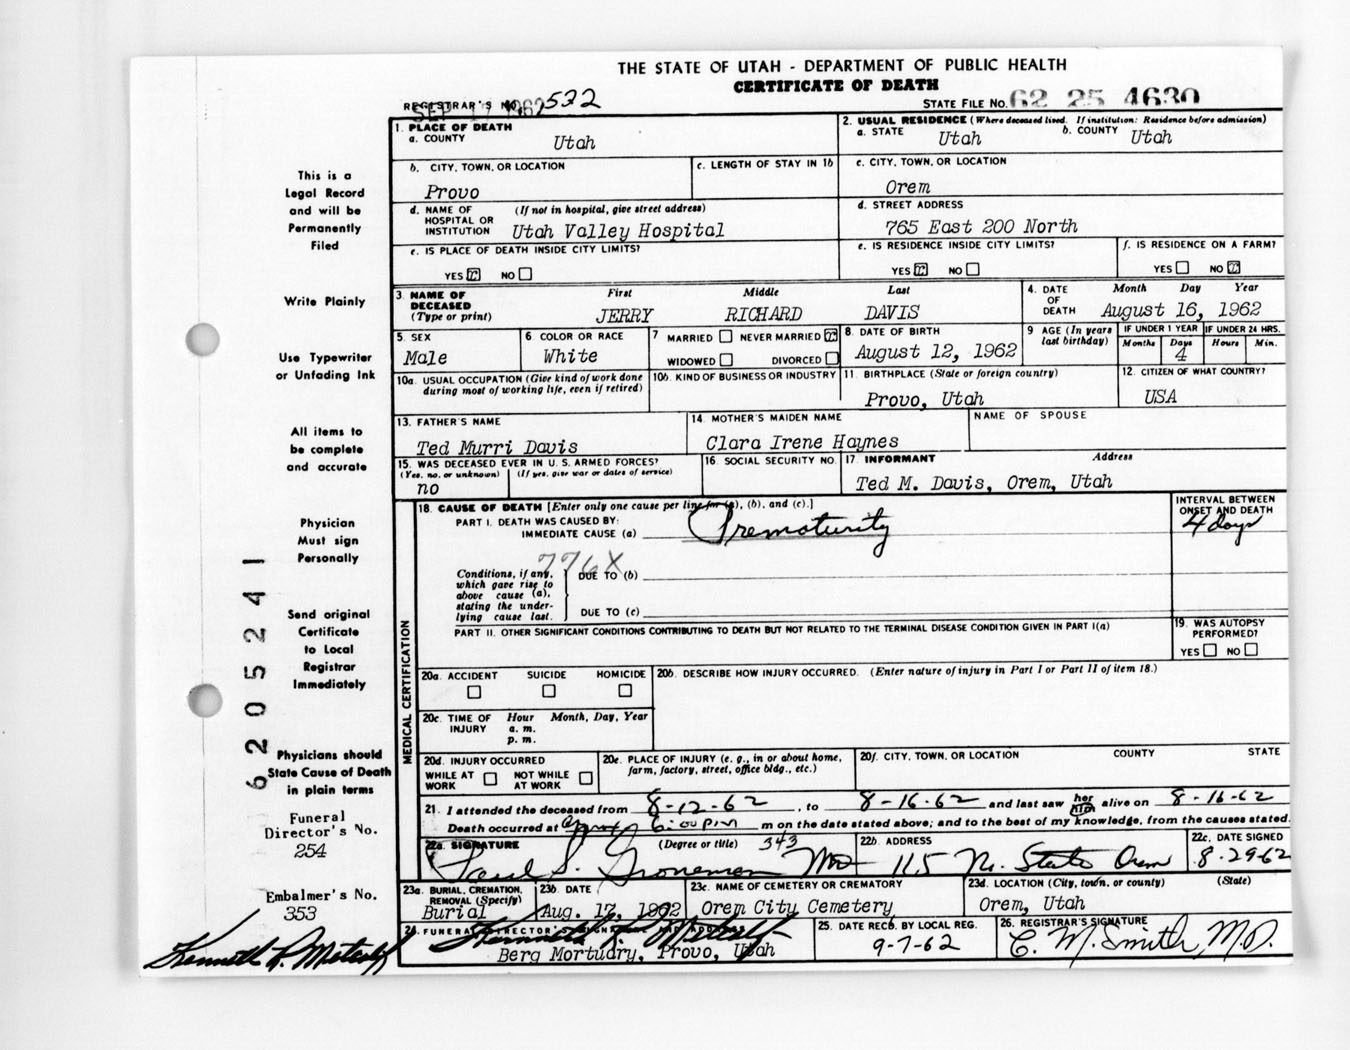 THE STATE OF UTAH - DEPARTMENT OF PUBLIC HEALTH
CERTIFICATE OF DEATH
REGISTRAR'S NO. 532
SEP 1962
STATE FILE NO. 62 25 4630
1. PLACE OF DEATH
a. COUNTY Utah
2. USUAL RESIDENCE (Where deceased lived. If institution: Residence before admission)
a. STATE Utah b. COUNTY Utah
b. CITY, TOWN, OR LOCATION Provo
c. LENGTH OF STAY IN 1b
c. CITY, TOWN, OR LOCATION Orem
d. NAME OF HOSPITAL OR INSTITUTION (If not in hospital, give street address) Utah Valley Hospital
d. STREET ADDRESS 765 East 200 North
e. IS PLACE OF DEATH INSIDE CITY LIMITS?
YES NO
e. IS RESIDENCE INSIDE CITY LIMITS?
YES NO
f. IS RESIDENCE ON A FARM?
YES NO
3. NAME OF DECEASED (Type or print)
First Middle Last
JERRY RICHARD DAVIS
4. DATE OF DEATH Month Day Year
August 16, 1962
5. SEX Male
6. COLOR OR RACE White
7 MARRIED NEVER MARRIED
WIDOWED DIVORCED
8. DATE OF BIRTH August 12, 1962
9 AGE (In years last birthday)
IF UNDER 1 YEAR IF UNDER 24 HRS.
Months Days Hours Min.
4
10a. USUAL OCCUPATION (Give kind of work done during most of working life, even if retired)
10b. KIND OF BUSINESS OR INDUSTRY
11. BIRTHPLACE (State or foreign country) Provo, Utah
12. CITIZEN OF WHAT COUNTRY? USA
13. FATHER'S NAME Ted Murri Davis
14. MOTHER'S MAIDEN NAME Clara Irene Haynes
NAME OF SPOUSE
15. WAS DECEASED EVER IN U. S. ARMED FORCES?
(Yes, no, or unknown) (If yes, give war or dates of service)
no
16. SOCIAL SECURITY NO.
17. INFORMANT Address
Ted M. Davis, Orem, Utah
MEDICAL CERTIFICATION
18. CAUSE OF DEATH [Enter only one cause per line for (a), (b), and (c).]
PART I. DEATH WAS CAUSED BY:
IMMEDIATE CAUSE (a) Prematurity
INTERVAL BETWEEN ONSET AND DEATH
4 days
776X
Conditions, if any, which gave rise to above cause (a), stating the underlying cause last.
DUE TO (b)
DUE TO (c)
PART II. OTHER SIGNIFICANT CONDITIONS CONTRIBUTING TO DEATH BUT NOT RELATED TO THE TERMINAL DISEASE CONDITION GIVEN IN PART I(a)
19. WAS AUTOPSY PERFORMED?
YES NO
20a. ACCIDENT SUICIDE HOMICIDE
20b. DESCRIBE HOW INJURY OCCURRED. (Enter nature of injury in Part I or Part II of item 18.)
20c. TIME OF INJURY Hour Month, Day, Year
a. m.
p. m.
20d. INJURY OCCURRED
WHILE AT WORK NOT WHILE AT WORK
20e. PLACE OF INJURY (e. g., in or about home, farm, factory, street, office bldg., etc.)
20f. CITY, TOWN, OR LOCATION COUNTY STATE
21. I attended the deceased from 8-12-62, to 8-16-62 and last saw her him alive on 8-16-62
Death occurred at approx 6:00 pm m on the date stated above; and to the best of my knowledge, from the causes stated.
22a. SIGNATURE (Degree or title) 343
Paul S. MD
22b. ADDRESS 115 No. State Orem
22c. DATE SIGNED 8-29-62
23a. BURIAL, CREMATION, REMOVAL (Specify) Burial
23b. DATE Aug. 17, 1962
23c. NAME OF CEMETERY OR CREMATORY Orem City Cemetery
23d. LOCATION (City, town, or county) (State)
Orem, Utah
24. FUNERAL DIRECTOR'S SIGNATURE AND ADDRESS
Kenneth R. Metcalf
Berg Mortuary, Provo, Utah
25. DATE REC'D. BY LOCAL REG. 9-7-62
26. REGISTRAR'S SIGNATURE C. M. Smith, M.D.
This is a
Legal Record
and will be
Permanently
Filed
Write Plainly
Use Typewriter
or Unfading Ink
All items to
be complete
and accurate
Physician
Must sign
Personally
Send original
Certificate
to Local
Registrar
Immediately
Physicians should
State Cause of Death
in plain terms
Funeral
Director's No.
254
Embalmer's No.
353
Kenneth R. Metcalf
62 05241